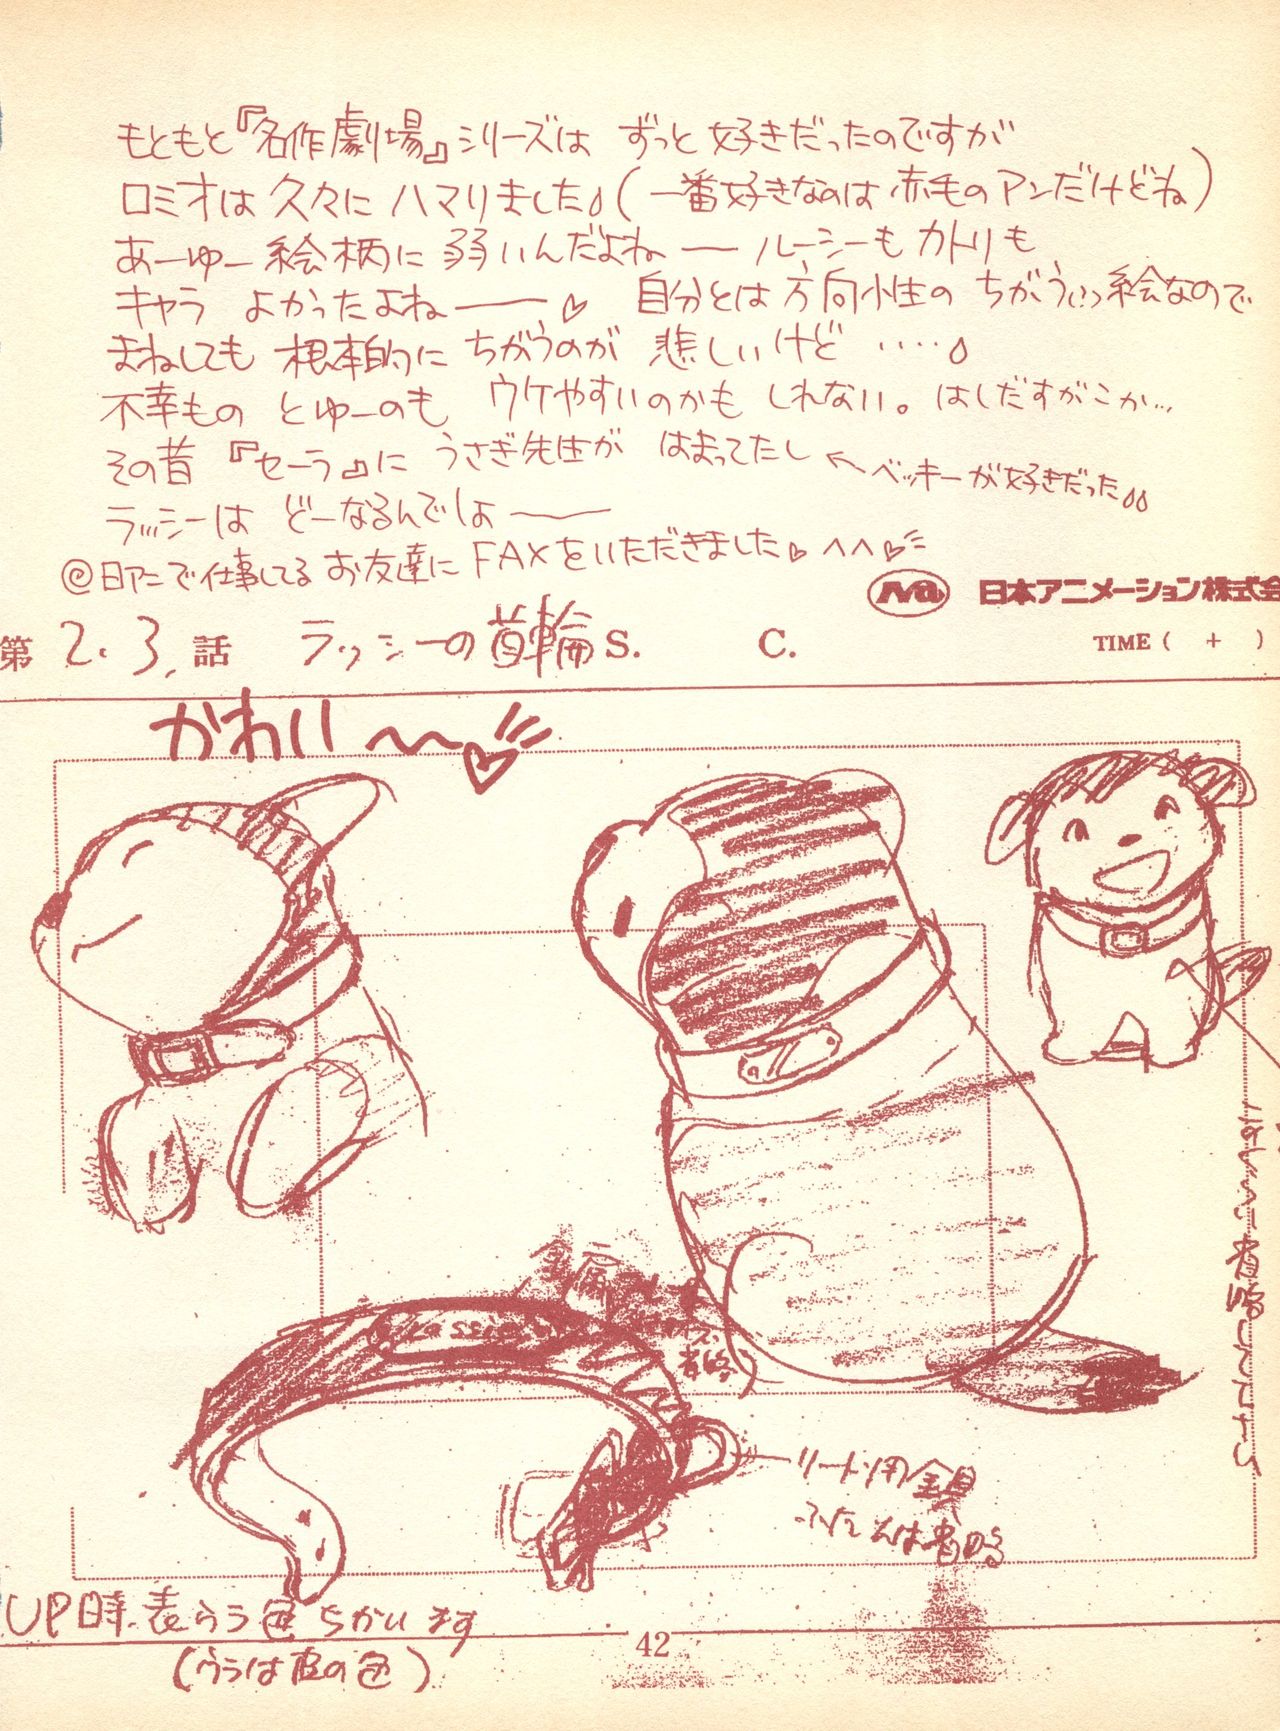 もともと『名作劇場』シリーズは ずっと好きだったのですが
ロミオは久々に ハマりました(一番好きなのは赤毛のアンだけどね)
あーゆー絵柄に弱いんだよねー ルーシーもカトリも
キャラ よかったよねー♡ 自分とは方向性の ちがうっつ絵なので
まねしても 根本的に ちがうのが 悲しいけど ‥‥
不幸もの とゆーのも ウケやすいのかも しれない。はしだすがこか…
その昔 『セーラ』に うさぎ先生が はまってたし ←ベッキーが好きだった
ラッシーは どーなるんでしょー
@日アニで仕事してる お友達に FAXをいただきました♡ ^^♡
Na 日本アニメーション株式会
第 2.3. 話 ラッシーの首輪 S. C. TIME ( + )
かわい〜〜♡
金属
Lassie
省略
リード用金具
ふだんは省略
省略して下さい
UP時.表うら色ちがいます
(ウラは皮の色)
42